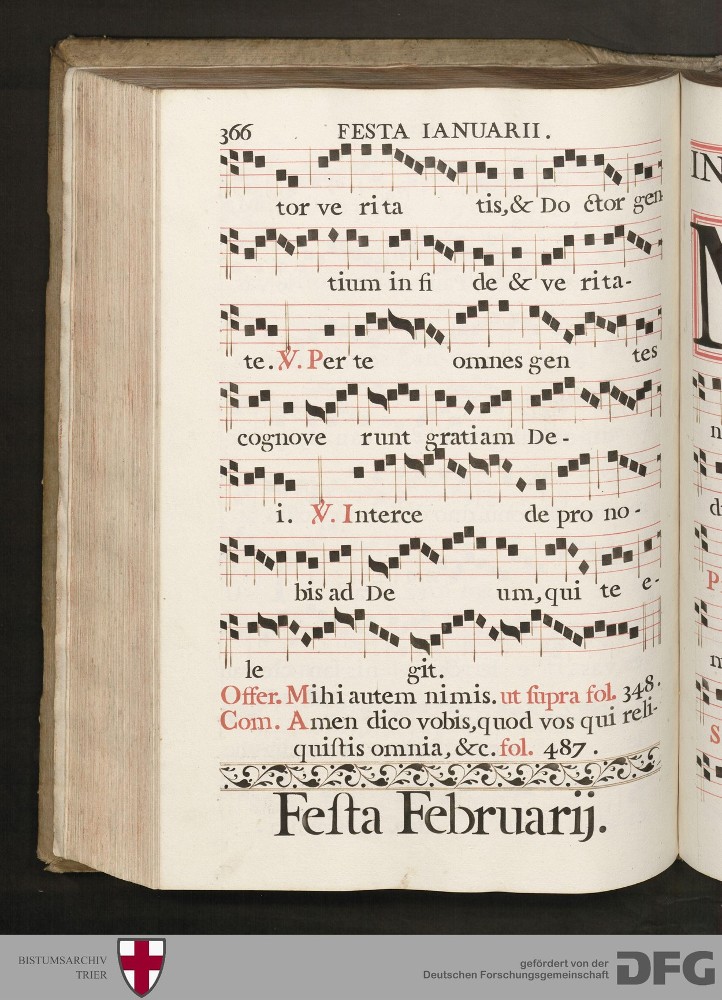 366 FESTA IANUARII.
tor ve rita tis,& Do ctor gen
tium in fi de & ve rita-
te. V. Per te omnes gen tes
cognove runt gratiam De-
i. V. Interce de pro no-
bis ad De um, qui te e-
le git.
Offer. Mihi autem nimis. ut ſupra fol. 348.
Com. Amen dico vobis, quod vos qui reli-
quiſtis omnia, &c. fol. 487.
Feſta Februarij.
IN
BISTUMSARCHIV
TRIER
gefördert von der
Deutschen Forschungsgemeinschaft
DFG